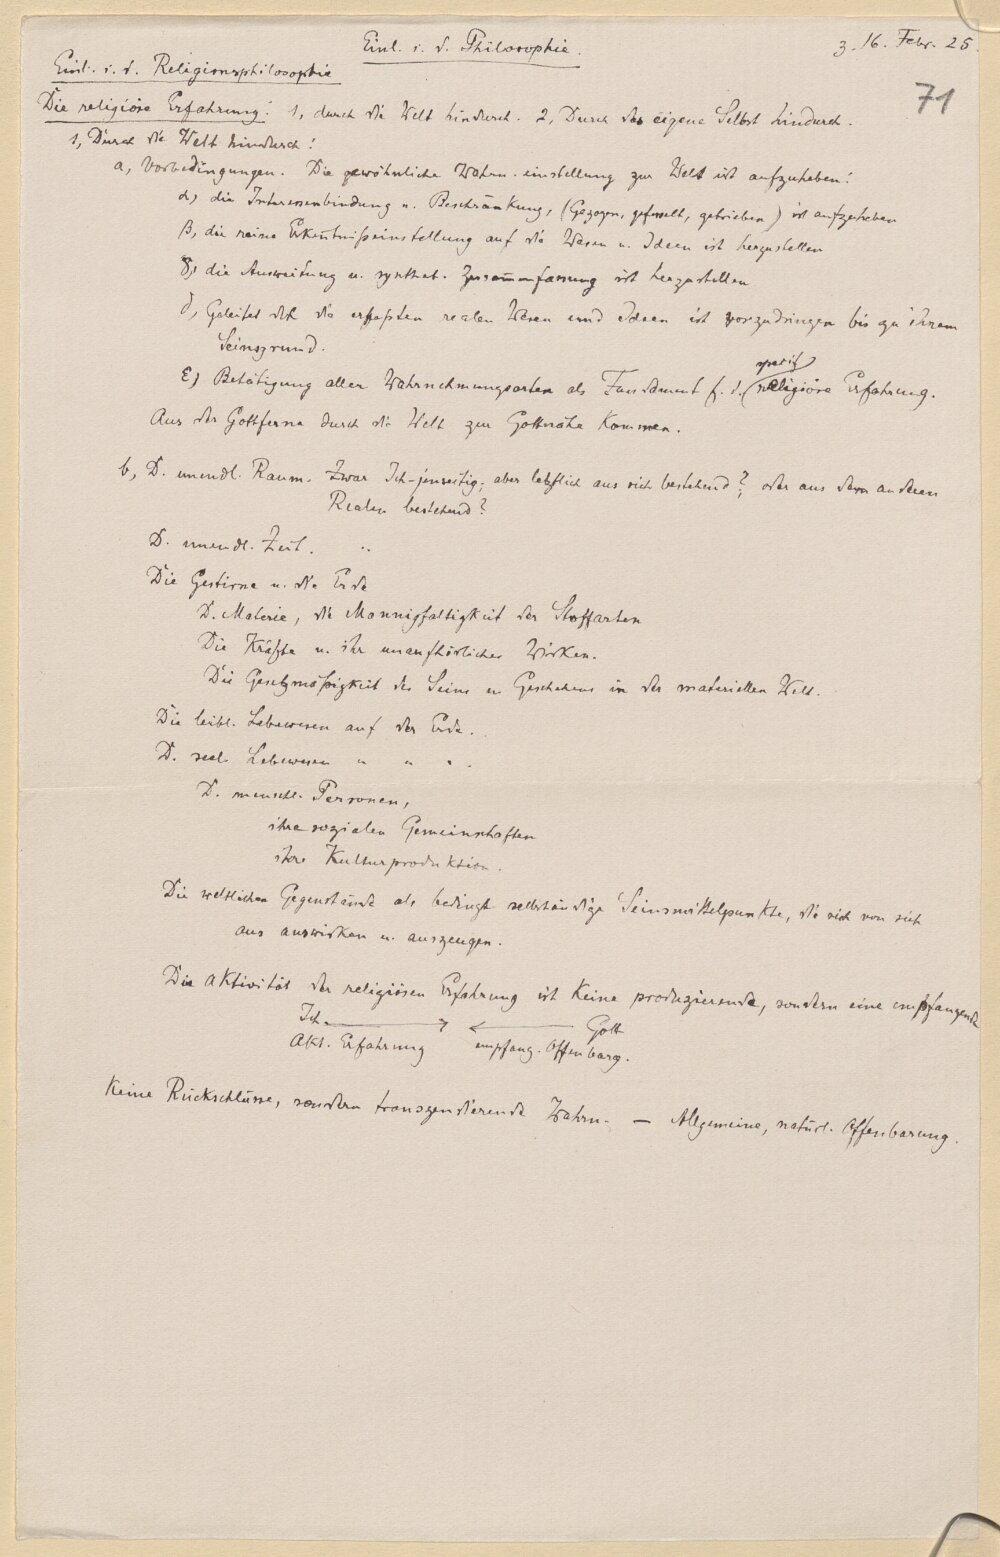 Einl. i. d. Philosophie.
z. 16. Febr. 25
Einl. i. d. Religionsphilosophie
71
Die religiöse Erfahrung: 1, durch die Welt hindurch. 2, Durch das eigene Selbst hindurch.
1, Durch die Welt hindurch:
a, Vorbedingungen. Die gewöhnliche Wahrn.einstellung zur Welt ist aufzuheben:
α, die Interessenbindung u. Beschränkung, (Gezogen, gefesselt, getrieben) ist aufzuheben
β, die reine Erkenntniseinstellung auf die Wesen u. Ideen ist herzustellen
γ, die Ausweitung u. synthet. Zusammenfassung ist herzustellen
δ, Geleitet dch die erfaßten realen Wesen und Ideen ist vorzudringen bis zu ihrem
Seinsgrund.
ε, Betätigung aller Wahrnehmungsarten als Fundament f. d. religiöse Erfahrung.
Aus der Gottferne durch die Welt zur Gottnähe kommen.
b, D. unendl. Raum. Zwar Ich-jenseitig; aber letztlich aus sich bestehend?; oder aus dem anderen
Realen bestehend?
D. unendl. Zeit. "
Die Gestirne u. die Erde
D. Materie, die Mannigfaltigkeit der Stoffarten
Die Kräfte u. ihr unaufhörliches Wirken.
Die Gesetzmäßigkeit des Seins u Geschehens in der materiellen Welt.
Die leibl. Lebewesen auf der Erde.
D. seel. Lebewesen " " " .
D. menschl. Personen,
ihre sozialen Gemeinschaften
ihre Kulturproduktion.
Die weltlichen Gegenstände als bedingt selbständige Seinsmittelpunkte, die sich von sich
aus auswirken u. auszeugen.
Die Aktivität der religiösen Erfahrung ist keine produzierende, sondern eine empfangende
Ich → ← Gott
Akt. Erfahrung empfang. Offenbarg.
Keine Rückschlüsse, sondern transzendierende Wahrn. — Allgemeine, natürl. Offenbarung.